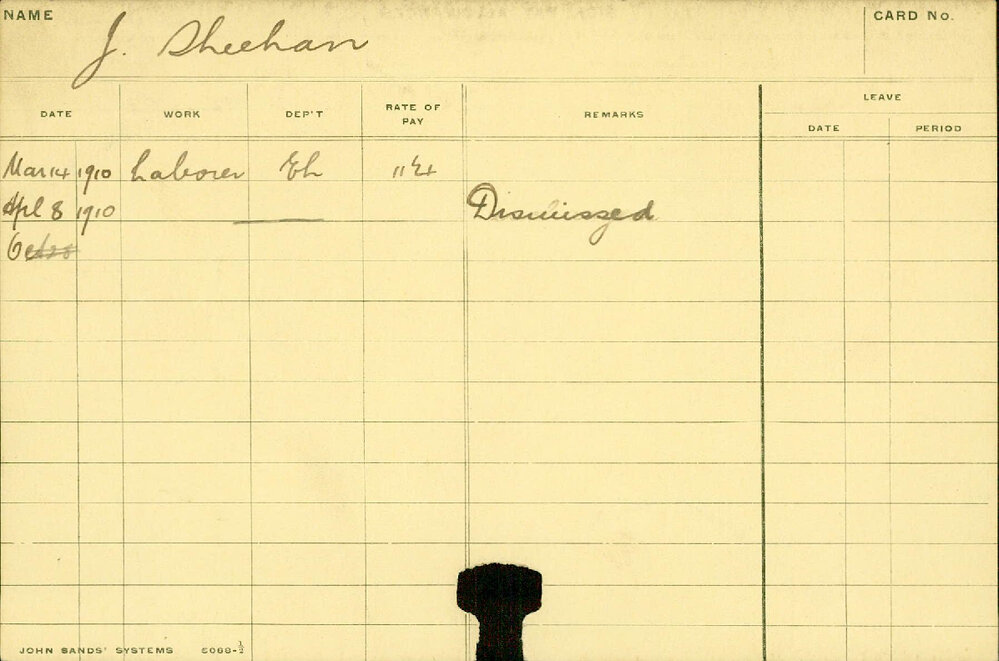 NAME J. Sheehan CARD No.
DATE WORK DEP'T RATE OF PAY REMARKS LEAVE
DATE PERIOD
Mar 14 1910 Laborer Eh
Apl 8 1910 Dismissed
JOHN SANDS' SYSTEMS